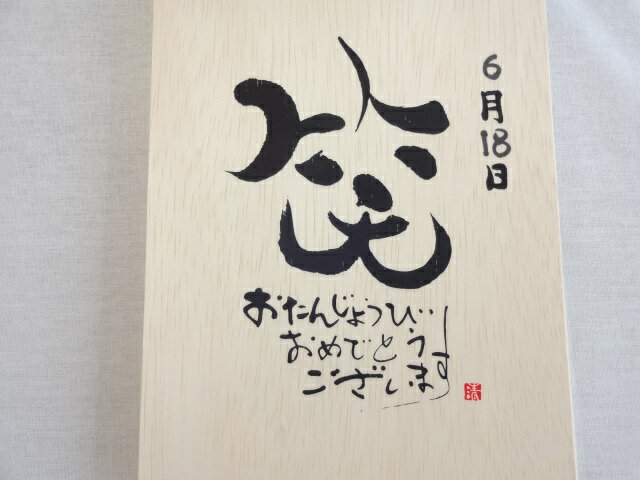 6月18日
笑
おたんじょうび
おめでとう
ございます